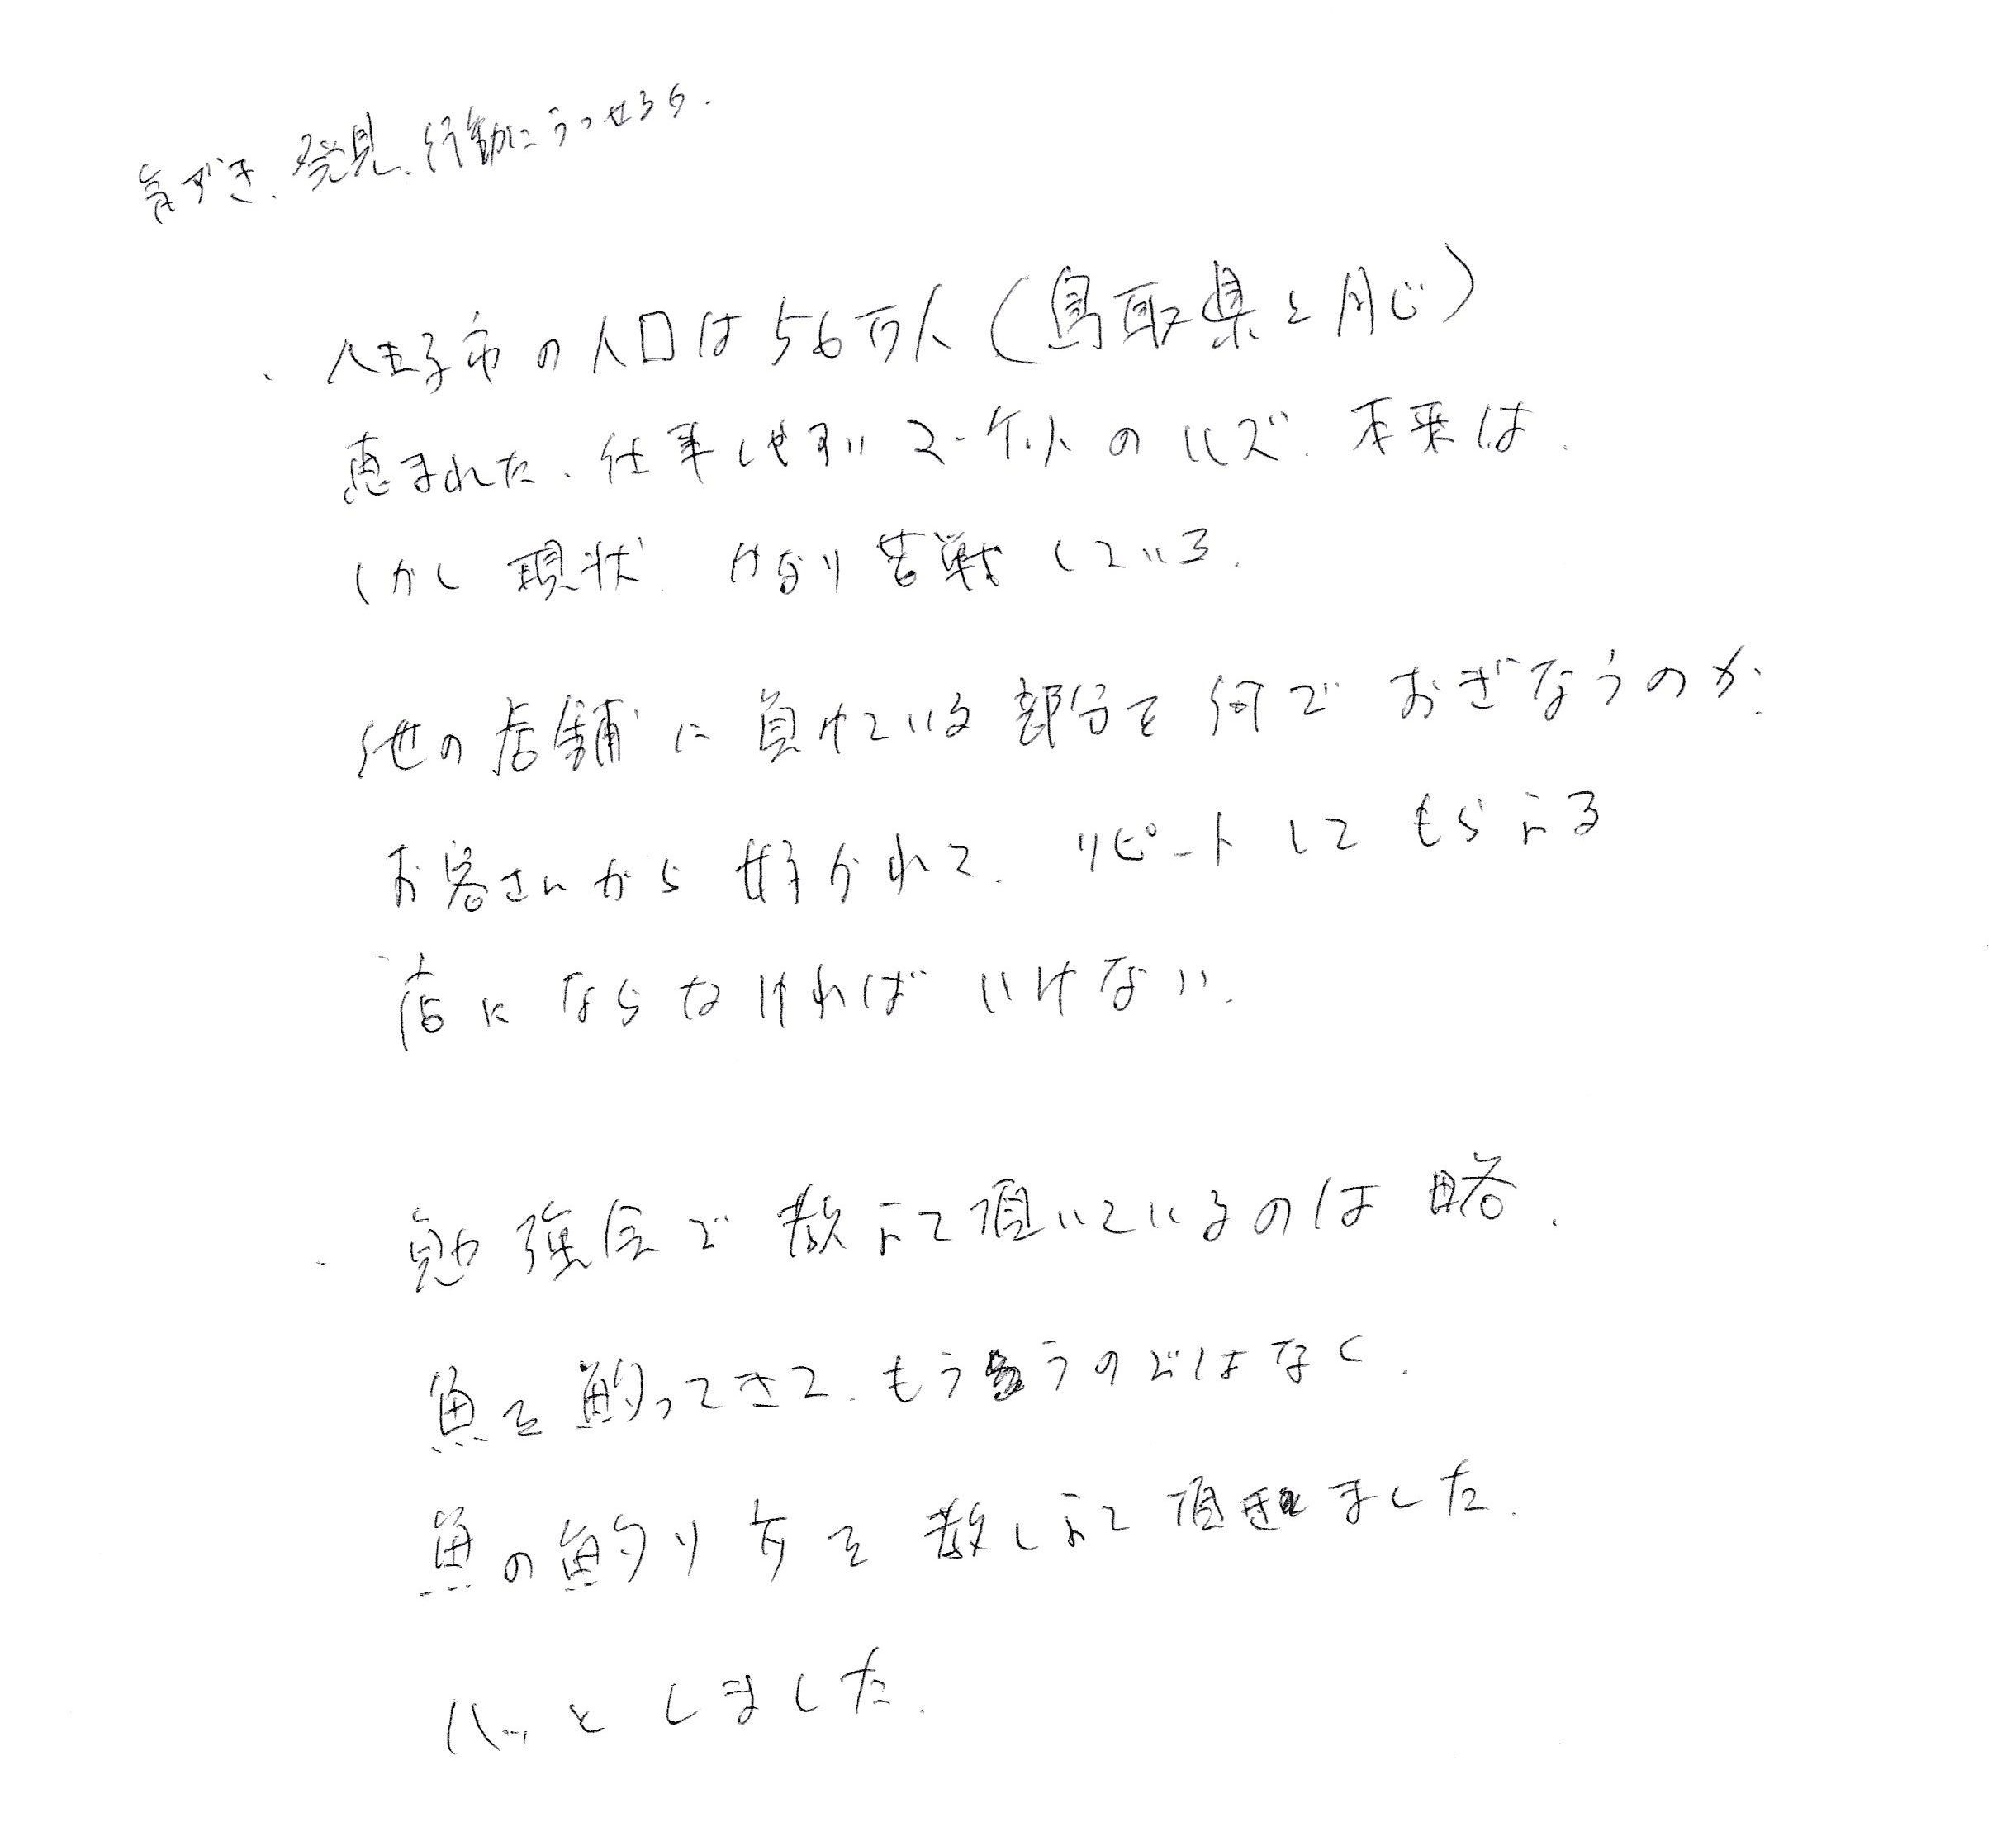 気ずき、発見、行動にうつせる
・八王子市の人口は56万人(鳥取県と同じ)
恵まれた、仕事しやすいマーケットのハズ、本来は。
しかし現状、かなり苦戦している。
他の店舗に負けている部分を何でおぎなうのか。
お客さんから好かれて、リピートしてもらえる
店にならなければいけない。
・勉強会で教えて頂いているのは略。
魚を釣ってきて、もらうのではなく、
魚の釣り方を教しえて頂きました。
ハッとしました。